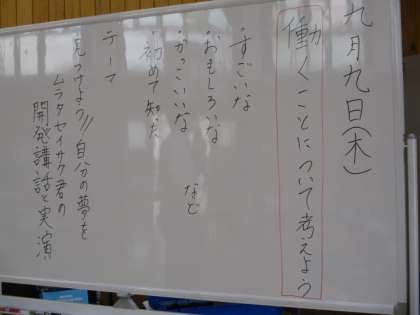 九月九日(木)
働くことについて考えよう
・すごいな
・おもしろいな
・かっこいいな など
・初めて知った
テーマ
見つけよう!!自分の夢を
ムラタセイサク君の
開発講話と実演